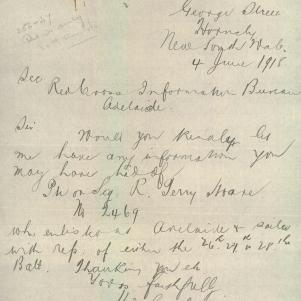 George Street
Hornsby
New South Wales
4 June 1918
Sec
Red Cross Information Bureau
Adelaide.
Sir
Would you kindly let
me have any information you
may have had of
L. Terry Hoare
2469
who enlisted at Adelaide & sailed
with refs. of either the 26th 27th or 28th
Batt. Thanking you etc
Yours faithfully